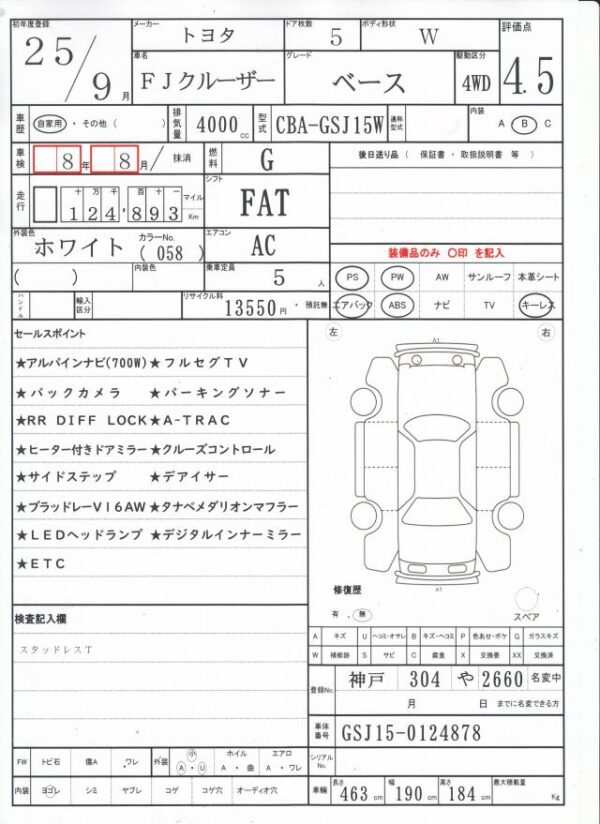 初年度登録 メーカー ドア枚数 ボディ形状 評価点
25/9月 トヨタ 5 W
車名 グレード 駆動区分
FJクルーザー ベース 4WD 4.5
車歴 自家用・その他( ) 排気量 4000cc 型式 CBA-GSJ15W 通称型式 内装 A B C
車検 8年 8月/ 抹消 燃料 G 後日送り品 ( 保証書・取扱説明書 等 )
走行 十万 千 百 十 マイル シフト
124,893 Km FAT
外装色 カラーNo. エアコン
ホワイト (058) AC 装備品のみ 〇印 を記入
( ) 内装色 乗車定員 5人 PS PW AW サンルーフ 本革シート
ハンドル 輸入区分 リサイクル料 13550円・預託無 エアバック ABS ナビ TV キーレス
セールスポイント 左 右
A1
★アルパインナビ(700W)★フルセグTV
★バックカメラ ★パーキングソナー
★RR DIFF LOCK★A-TRAC
★ヒーター付きドアミラー★クルーズコントロール
★サイドステップ ★デアイサー
★ブラッドレーV16AW★タナベメダリオンマフラー
★LEDヘッドランプ ★デジタルインナーミラー
★ETC
A1
修復歴
有・無 スペア
検査記入欄
スタッドレスT
A キズ U ヘコミ・オサレ B キズ・ヘコミ P 色あせ・ボケ G ガラスキズ
W 補修跡 S サビ C 腐食 X 交換要 XX 交換済
登録No. 神戸 304 や 2660 名変中
月 日 までに名変できる方
車体番号 GSJ15-0124878
FW トビ石 傷A ワレ 外装 小 A・U ホイル A・曲 エアロ A・ワレ シリアルNo.
内装 ヨゴレ シミ ヤブレ コゲ コゲ穴 オーディオ穴 車輛 長さ 463cm 幅 190cm 高さ 184cm 最大積載量 Kg